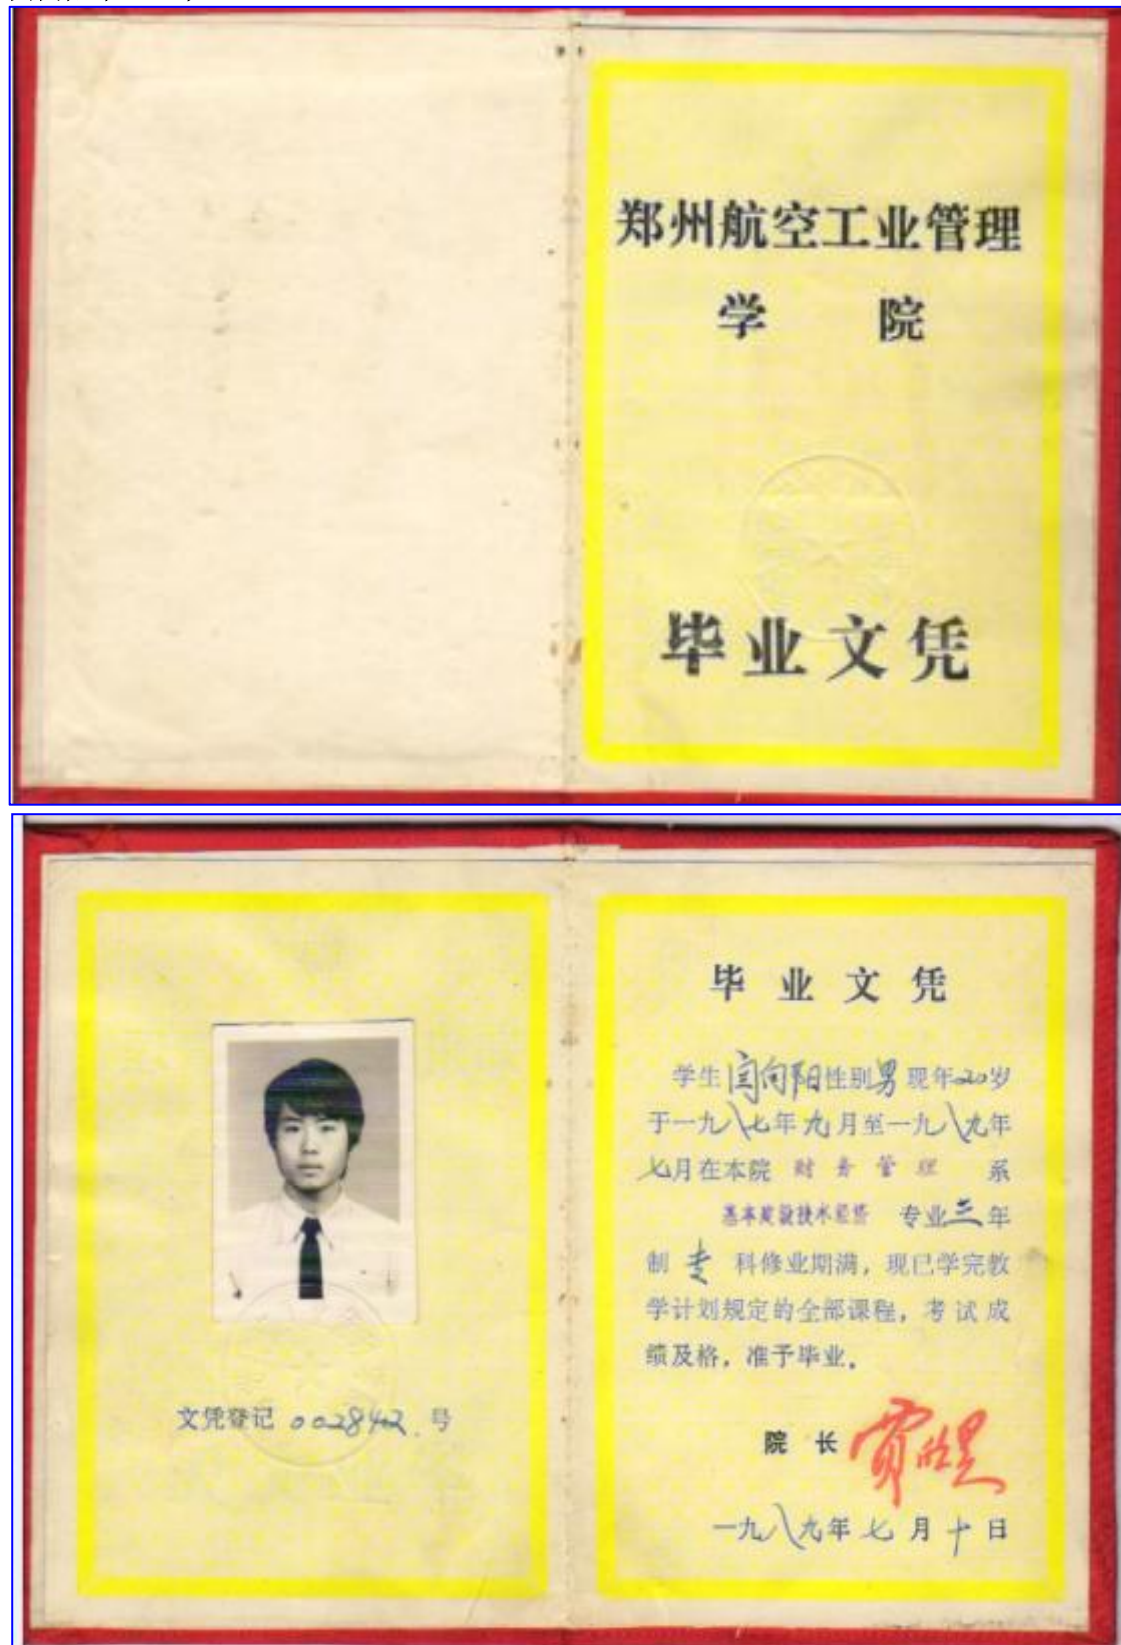 郑州航空工业管理
学院
毕业文凭
文凭登记 0028402 号
毕业文凭
学生闫向阳性别男现年20岁
于一九八七年九月至一九八九年
七月在本院 财务管理 系
基本建设技术经济 专业三年
制 专 科修业期满，现已学完教
学计划规定的全部课程，考试成
绩及格，准予毕业。
院长
一九八九年七月十日